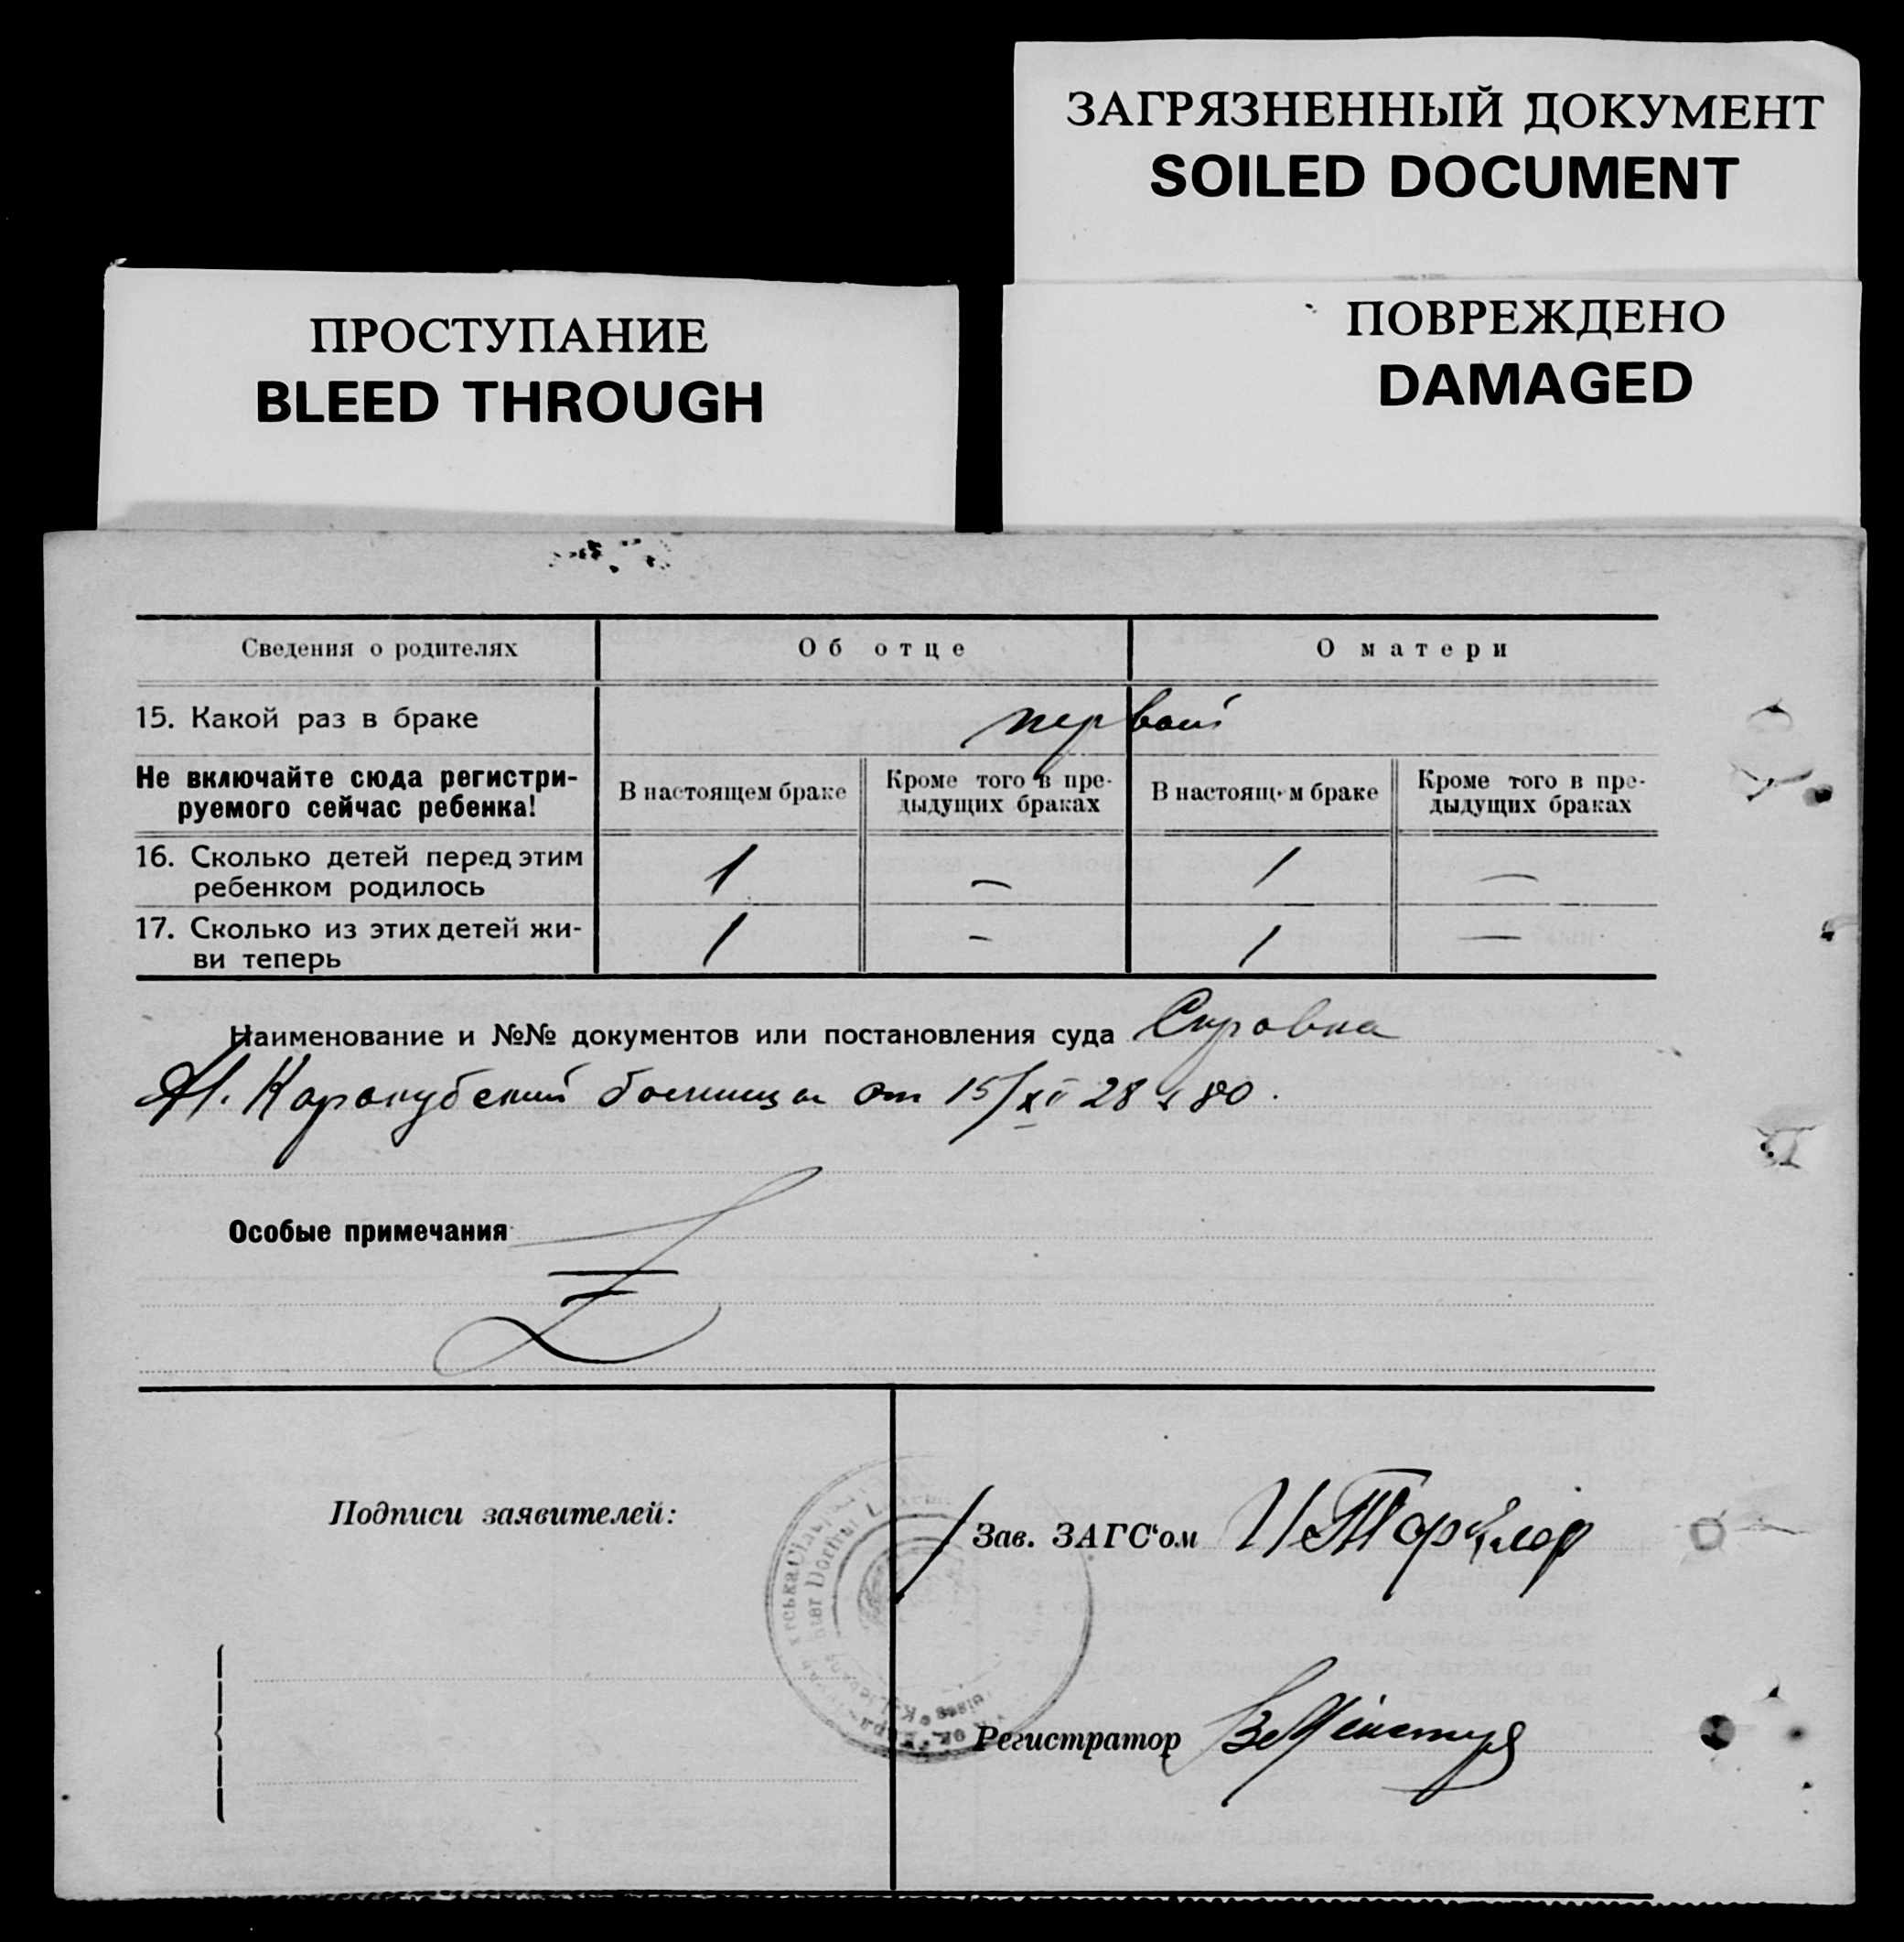 ЗАГРЯЗНЕННЫЙ ДОКУМЕНТ
SOILED DOCUMENT
ПРОСТУПАНИЕ
BLEED THROUGH
ПОВРЕЖДЕНО
DAMAGED
Сведения о родителях Об отце О матери
15. Какой раз в браке первый
Не включайте сюда регистри-
руемого сейчас ребенка!
В настоящем браке
Кроме того в пре-
дыдущих браках
В настоящ м браке
Кроме того в пре-
дыдущих браках
16. Сколько детей перед этим
ребенком родилось 1 — 1 —
17. Сколько из этих детей жи-
ви теперь 1 — 1 —
Наименование и №№ документов или постановления суда Справка
Каракубский больницы от 15/XII 28 80.
Особые примечания
Подписи заявителей:
Зав. ЗАГС'ом
Регистратор